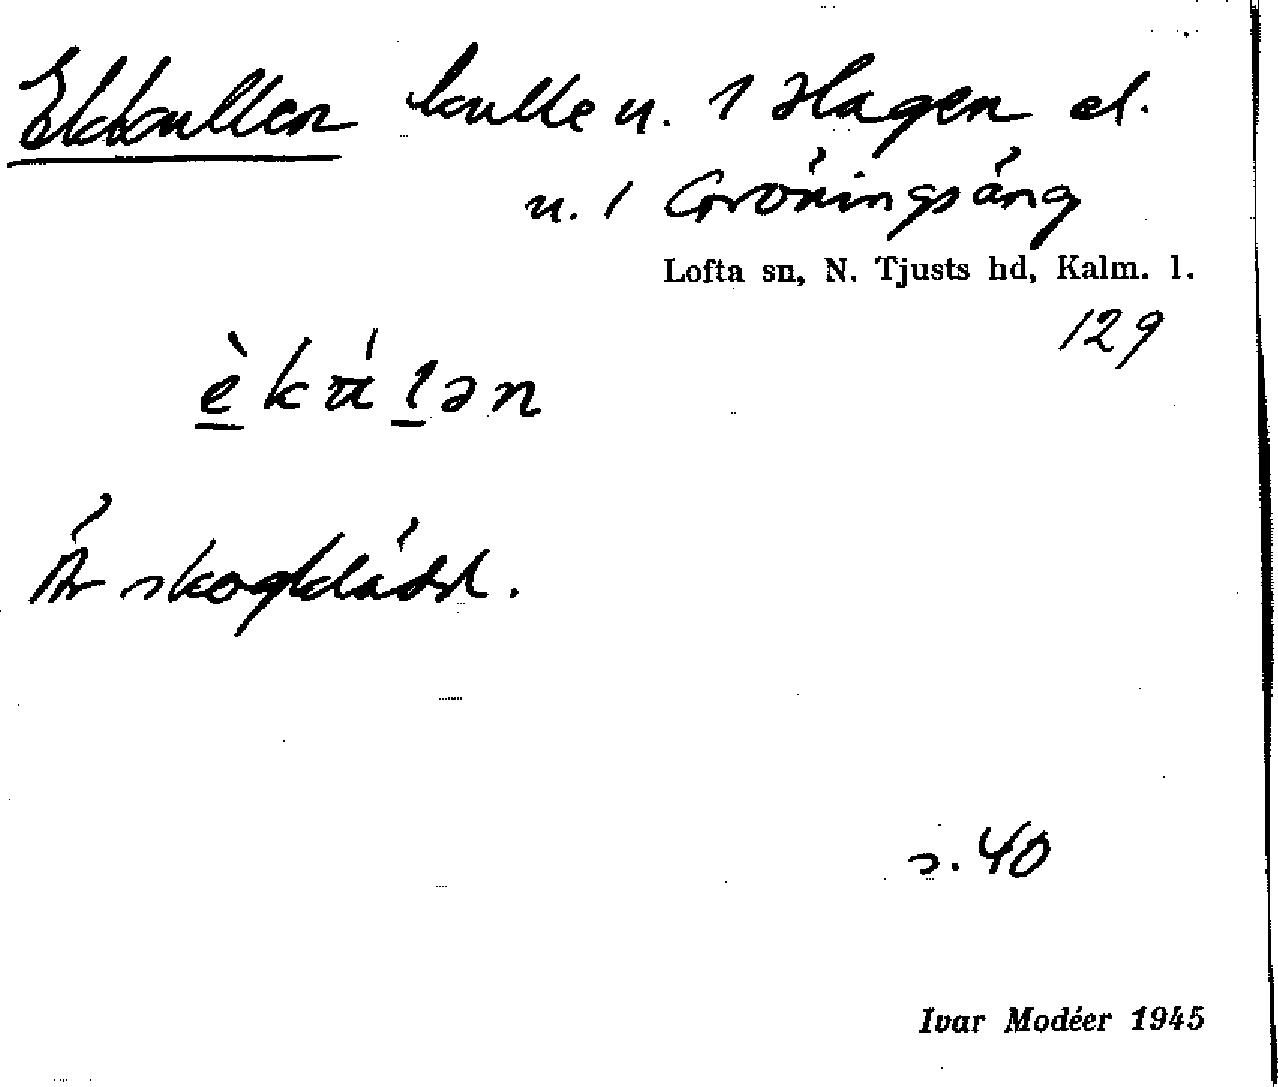 Ekkullen kulle u. 1 Hagen el.
u. 1 Gröningsäng
Lofta sn, N. Tjusts hd, Kalm. l.
129
Är skogklädd.
s. 40
Ivar Modéer 1945